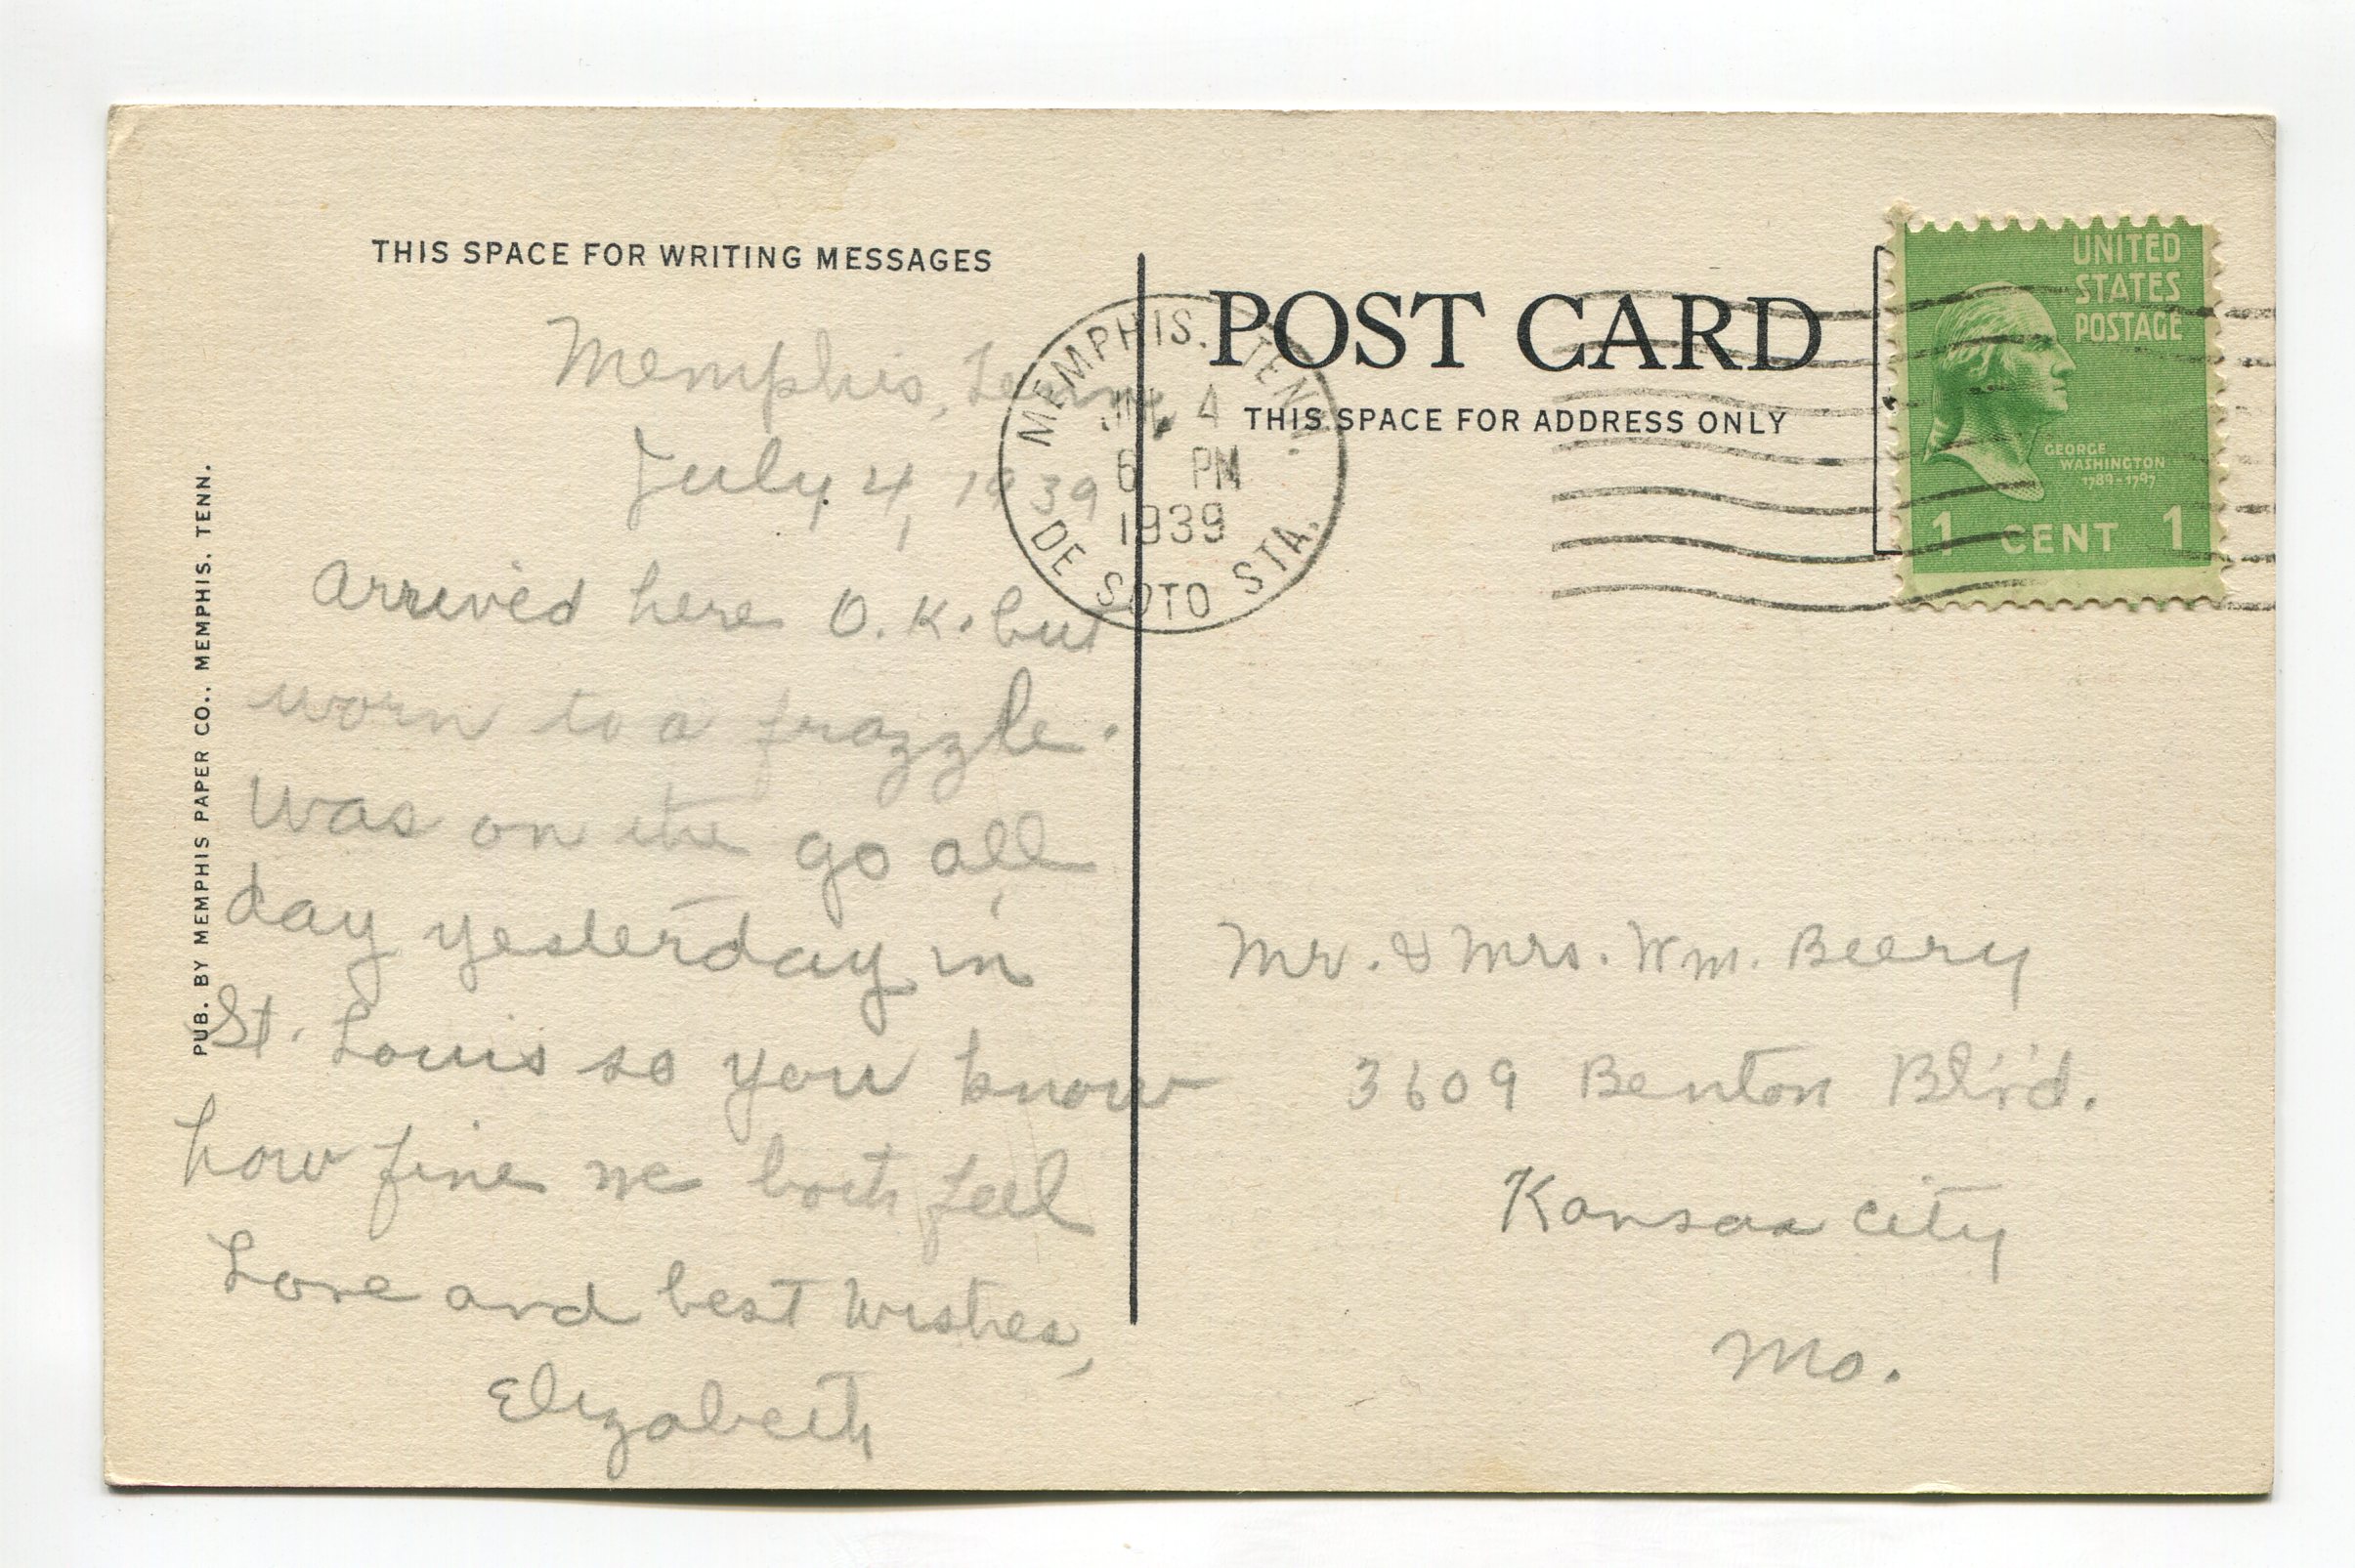 THIS SPACE FOR WRITING MESSAGES
Memphis, Tenn.
July 4, 1939
Arrived here O.K. but
worn to a frazzle.
Was on the go all
day yesterday in
St. Louis so you know
how fine we both feel
Love and best wishes,
Elizabeth
PUB. BY MEMPHIS PAPER CO., MEMPHIS. TENN.
MEMPHIS. TENN.
JUL 4
6 PM
1939
DE SOTO STA.
POST CARD
THIS SPACE FOR ADDRESS ONLY
UNITED
STATES
POSTAGE
GEORGE
WASHINGTON
1789-1797
1 CENT 1
Mr. & Mrs. Wm. Beery
3609 Benton Blv'd.
Kansas City
Mo.